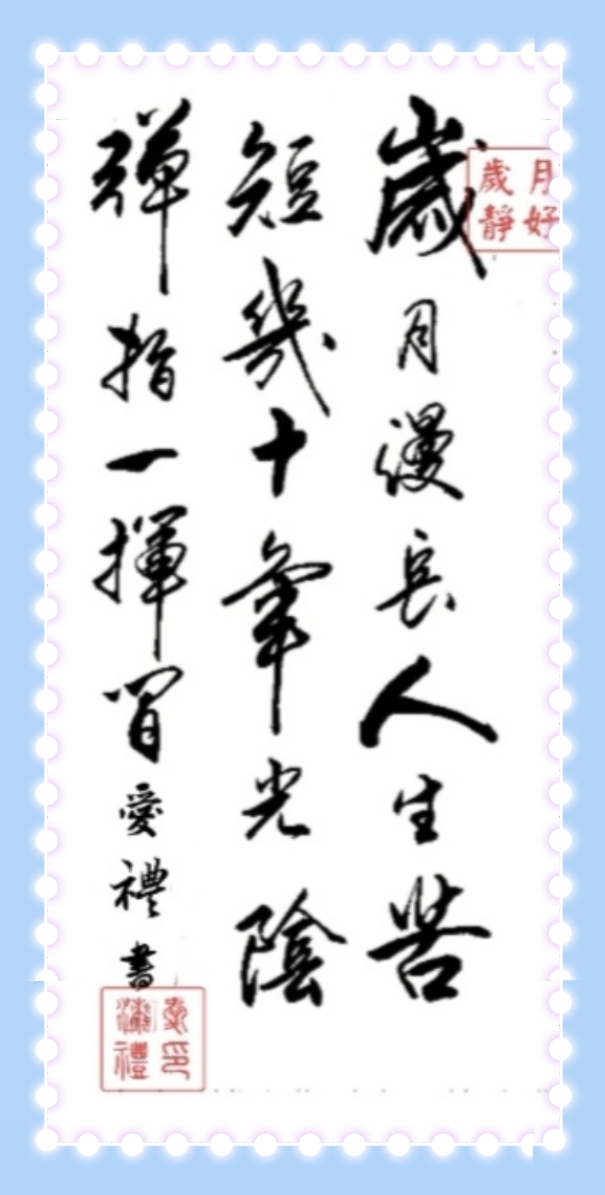 歲月漫長人生苦
短幾十年光陰
彈指一揮間
愛禮書
歲月
靜好
禮印